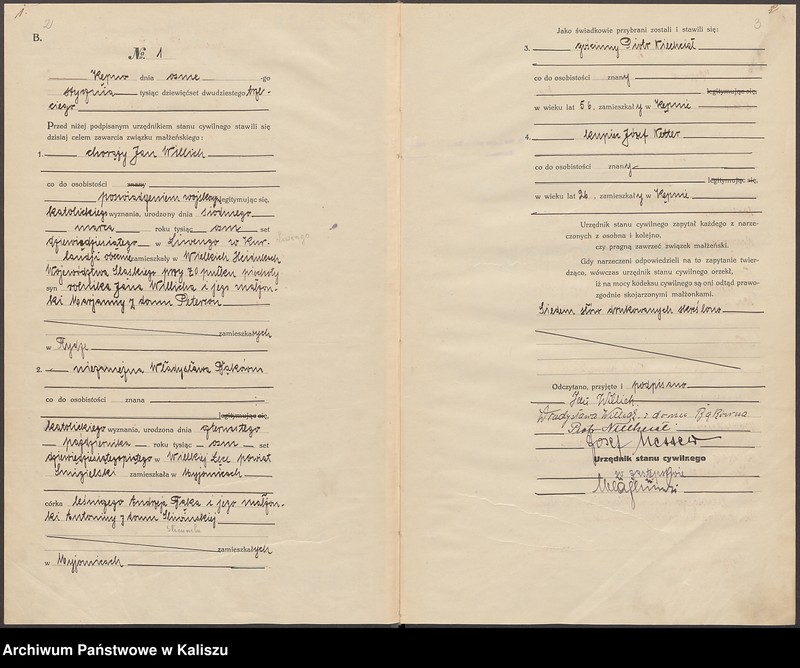 1
2
B.
No. 1
Kępno dnia ósme -go
stycznia tysiąc dziewięćset dwudziestego trze-
ciego
Przed niżej podpisanym urzędnikiem stanu cywilnego stawili się
dzisiaj celem zawarcia związku małżeńskiego:
1. chorąży Jan Willich
co do osobistości znany
poświadczeniem wojskowym legitymując się,
katolickiego wyznania, urodzony dnia siódmego
marca roku tysiąc ośm set
dziewięćdziesiątego w Liwengo w Kur-
landji obecnie zamieszkały w Wielkich Hajdukach
Województwa Śląskiego przy 70 pułku piechoty
syn rolnika Jana Willicha i jego małżon-
ki Marjanny z domu Peterson
zamieszkałych
w Rydze
2. niezamężna Władysława Bąkówna
co do osobistości znana
legitymując się,
katolickiego wyznania, urodzona dnia czternastego
października roku tysiąc ośm set
dziewięćdziesiątego piątego w Wielkiej Łęce powiat
Śmigielski zamieszkała w Myjomicach
córka leśniczego Andrzeja Bąka i jego małżon-
ki Antoniny z domu Śliwińskiej
zamieszkałych
w Myjomicach
2
3
Jako świadkowie przybrani zostali i stawili się:
3. Piotr
co do osobistości znany
legitymując się,
w wieku lat 56, zamieszkały w Kępnie
4. kupiec Józef
co do osobistości znany
legitymując się,
w wieku lat 26, zamieszkały w Kępnie
Urzędnik stanu cywilnego zapytał każdego z narze-
czonych z osobna i kolejno,
czy pragną zawrzeć związek małżeński.
Gdy narzeczeni odpowiedzieli na to zapytanie twier-
dząco, wówczas urzędnik stanu cywilnego orzekł,
iż na mocy kodeksu cywilnego są oni odtąd prawo-
zgodnie skojarzonymi małżonkami.
Siedem słów drukowanych skreślono
Odczytano, przyjęto i podpisano
Jan Willich
Władysława Willich z domu Bąkówna
Piotr
Josef
Urzędnik stanu cywilnego
w zastępstwie
Archiwum Państwowe w Kaliszu